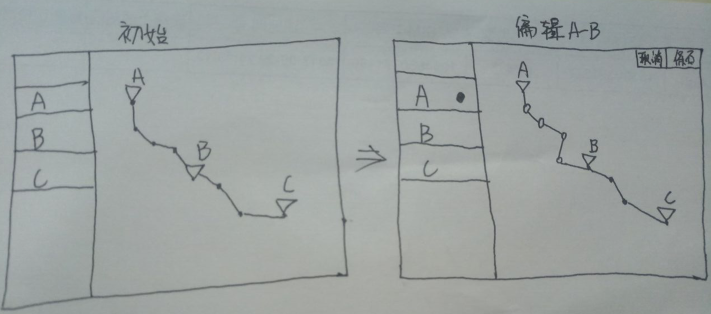 初始
A
B
C
A
B
C
编辑A-B
取消
A
B
C
A
B
C